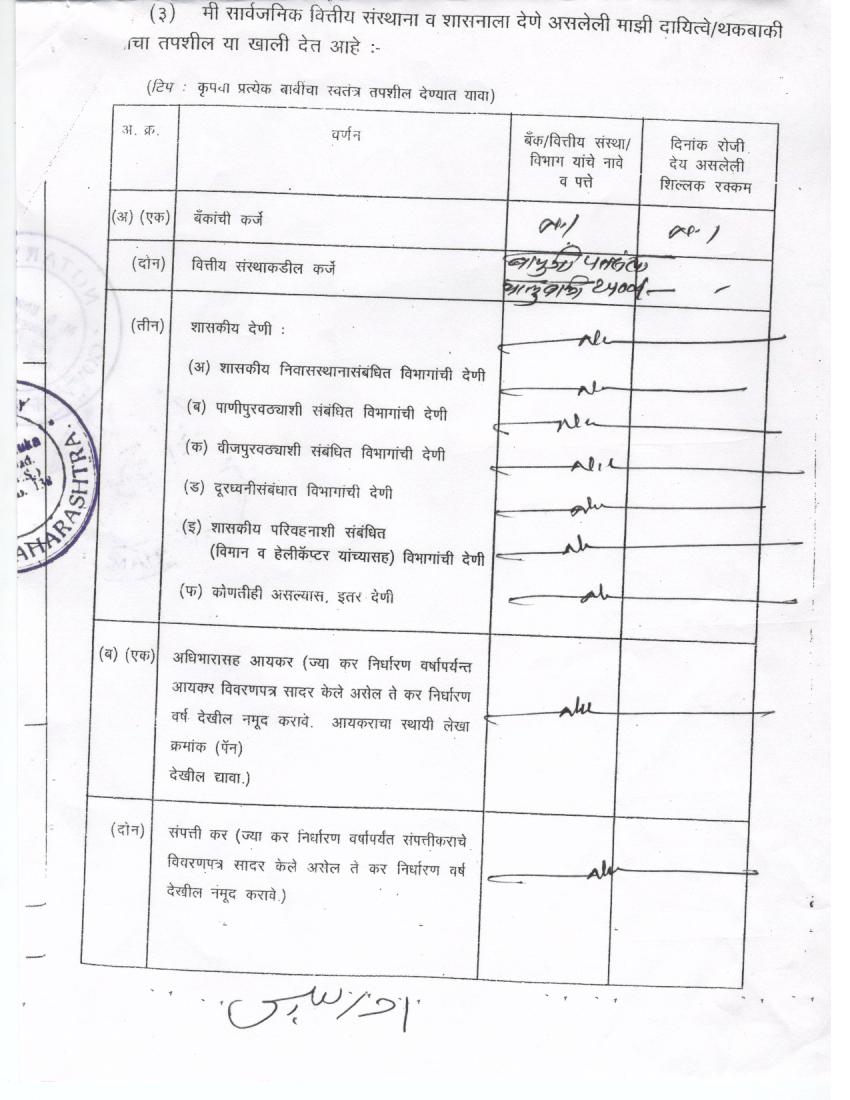 (३) मी सार्वजनिक वित्तीय संस्थाना व शासनाला देणे असलेली माझी दायित्वे/थकबाकी
चा तपशील या खाली देत आहे :-
(टिप : कृपया प्रत्येक बाबींचा स्वतंत्र तपशील देण्यात यावा)
अ. क्र.
वर्णन
बँक/वित्तीय संस्था/
विभाग यांचे नावे
व पत्ते
दिनांक रोजी
देय असलेली
शिल्लक रक्कम
(अ) (एक) बँकांची कर्जे
(दोन) वित्तीय संस्थाकडील कर्जे
(तीन) शासकीय देणी :
(अ) शासकीय निवासस्थानासंबंधित विभागांची देणी
(ब) पाणीपुरवठ्याशी संबंधित विभागांची देणी
(क) वीजपुरवठ्याशी संबंधित विभागांची देणी
(ड) दूरध्वनीसंबंधात विभागांची देणी
(इ) शासकीय परिवहनाशी संबंधित
(विमान व हेलीकॅप्टर यांच्यासह) विभागांची देणी
(फ) कोणतीही असल्यास, इतर देणी
(ब) (एक) अधिभारासह आयकर (ज्या कर निर्धारण वर्षापर्यन्त
आयकर विवरणपत्र सादर केले असेल ते कर निर्धारण
वर्ष देखील नमूद करावे. आयकराचा स्थायी लेखा
क्रमांक (पॅन)
देखील द्यावा.)
(दोन) संपत्ती कर (ज्या कर निर्धारण वर्षापर्यंत संपत्तीकराचे
विवरणपत्र सादर केले असेल ते कर निर्धारण वर्ष
देखील नमूद करावे.)
AHARASHTRA.
NOTAR